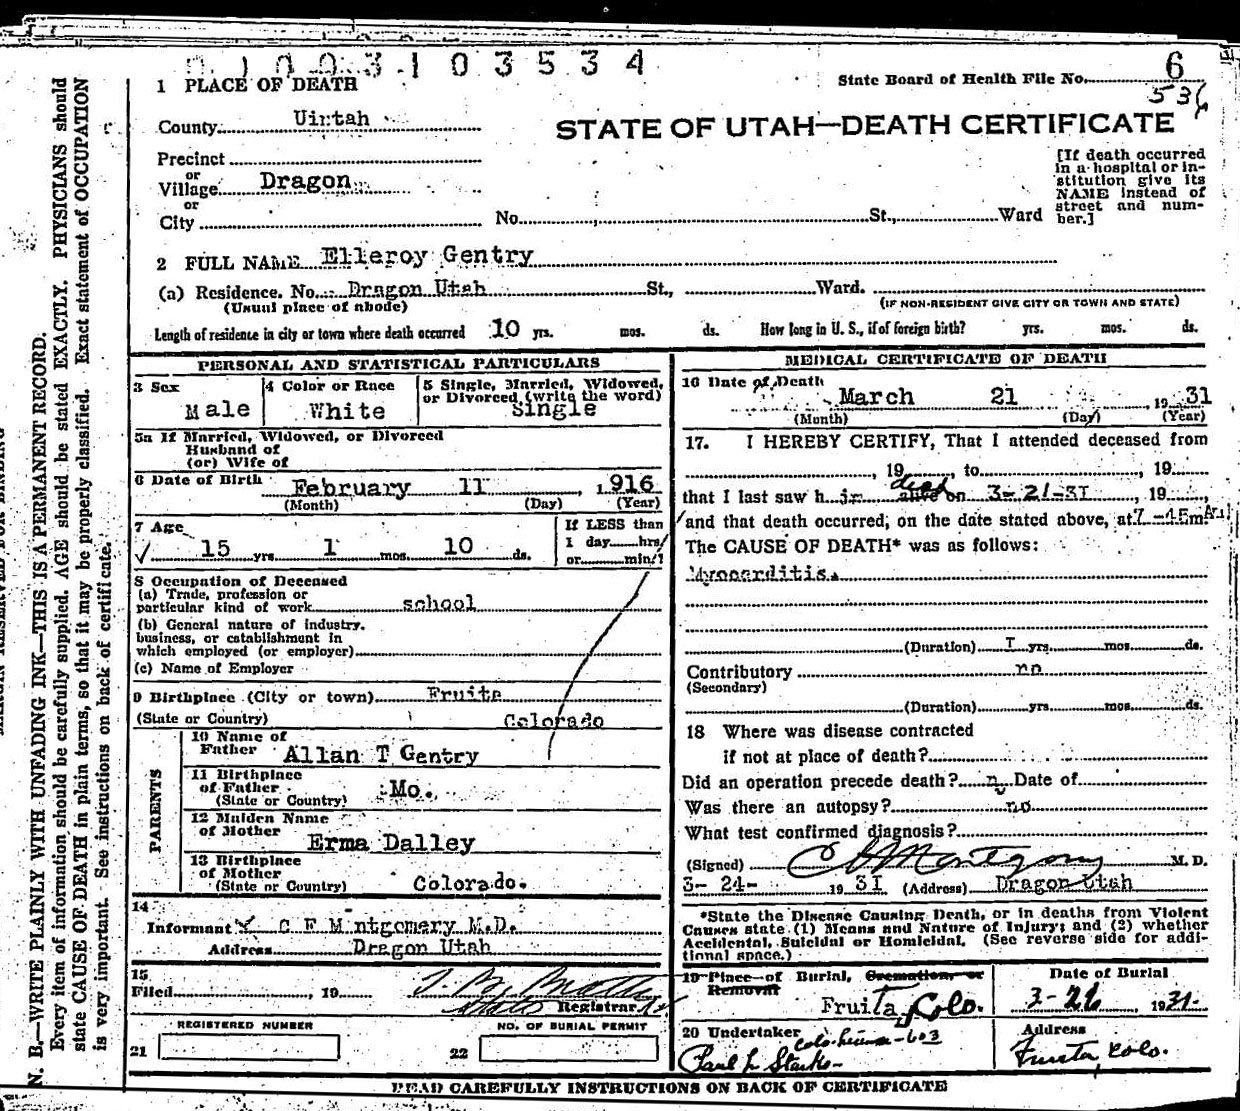 1003103534
State Board of Health File No. 6
536
1 PLACE OF DEATH
County Uintah
STATE OF UTAH—DEATH CERTIFICATE
Precinct
or
Village Dragon
or
City
No. St., Ward
[If death occurred
in a hospital or in-
stitution give its
NAME instead of
street and num-
ber.]
2 FULL NAME Elleroy Gentry
(a) Residence. No. Dragon Utah St., Ward.
(Usual place of abode)
(IF NON-RESIDENT GIVE CITY OR TOWN AND STATE)
Length of residence in city or town where death occurred 10 yrs. mos. ds. How long in U. S., if of foreign birth? yrs. mos. ds.
PERSONAL AND STATISTICAL PARTICULARS
3 Sex
Male
4 Color or Race
White
5 Single, Married, Widowed,
or Divorced (write the word)
Single
5a If Married, Widowed, or Divorced
Husband of
(or) Wife of
6 Date of Birth February 11 , 1916
(Month) (Day) (Year)
7 Age
15 yrs. 1 mos. 10 ds.
If LESS than
1 day hrs.
or min.?
8 Occupation of Deceased
(a) Trade, profession or
particular kind of work school
(b) General nature of industry,
business, or establishment in
which employed (or employer)
(c) Name of Employer
9 Birthplace (City or town) Fruita
(State or Country) Colorado
PARENTS
10 Name of
Father Allan T Gentry
11 Birthplace
of Father Mo.
(State or Country)
12 Maiden Name
of Mother Erma Dalley
13 Birthplace
of Mother
(State or Country) Colorado.
14
Informant C F Mntgomery M.D.
Address Dragon Utah
15
Filed , 19
Registrar
REGISTERED NUMBER
21
NO. OF BURIAL PERMIT
22
MEDICAL CERTIFICATE OF DEATH
16 Date of Death
March 21 , 1931
(Month) (Day) (Year)
17. I HEREBY CERTIFY, That I attended deceased from
, 19 , to , 19
dead
that I last saw h im alive on 3-21-31 , 19 ,
and that death occurred, on the date stated above, at 7-45m
The CAUSE OF DEATH* was as follows:
Myocarditis.
(Duration) I yrs. mos. ds.
Contributory no
(Secondary)
(Duration) yrs. mos. ds.
18 Where was disease contracted
if not at place of death?
Did an operation precede death? n Date of
Was there an autopsy? no
What test confirmed diagnosis?
(Signed) C F Montgomery M. D.
3- 24- 1931 (Address) Dragon Utah
*State the Disease Causing Death, or in deaths from Violent
Causes state (1) Means and Nature of Injury; and (2) whether
Accidental, Suicidal or Homicidal. (See reverse side for addi-
tional space.)
19 Place of Burial, Cremation or
Removal
Fruita, Colo.
Date of Burial
3-26 1931-
20 Undertaker
Colo. license-603
Paul L Starks-
Address
Fruita, Colo.
READ CAREFULLY INSTRUCTIONS ON BACK OF CERTIFICATE
MARGIN RESERVED FOR BINDING
N. B.—WRITE PLAINLY WITH UNFADING INK—THIS IS A PERMANENT RECORD.
Every item of information should be carefully supplied. AGE should be stated EXACTLY. PHYSICIANS should
state CAUSE OF DEATH in plain terms, so that it may be properly classified. Exact statement of OCCUPATION
is very important. See instructions on back of certificate.